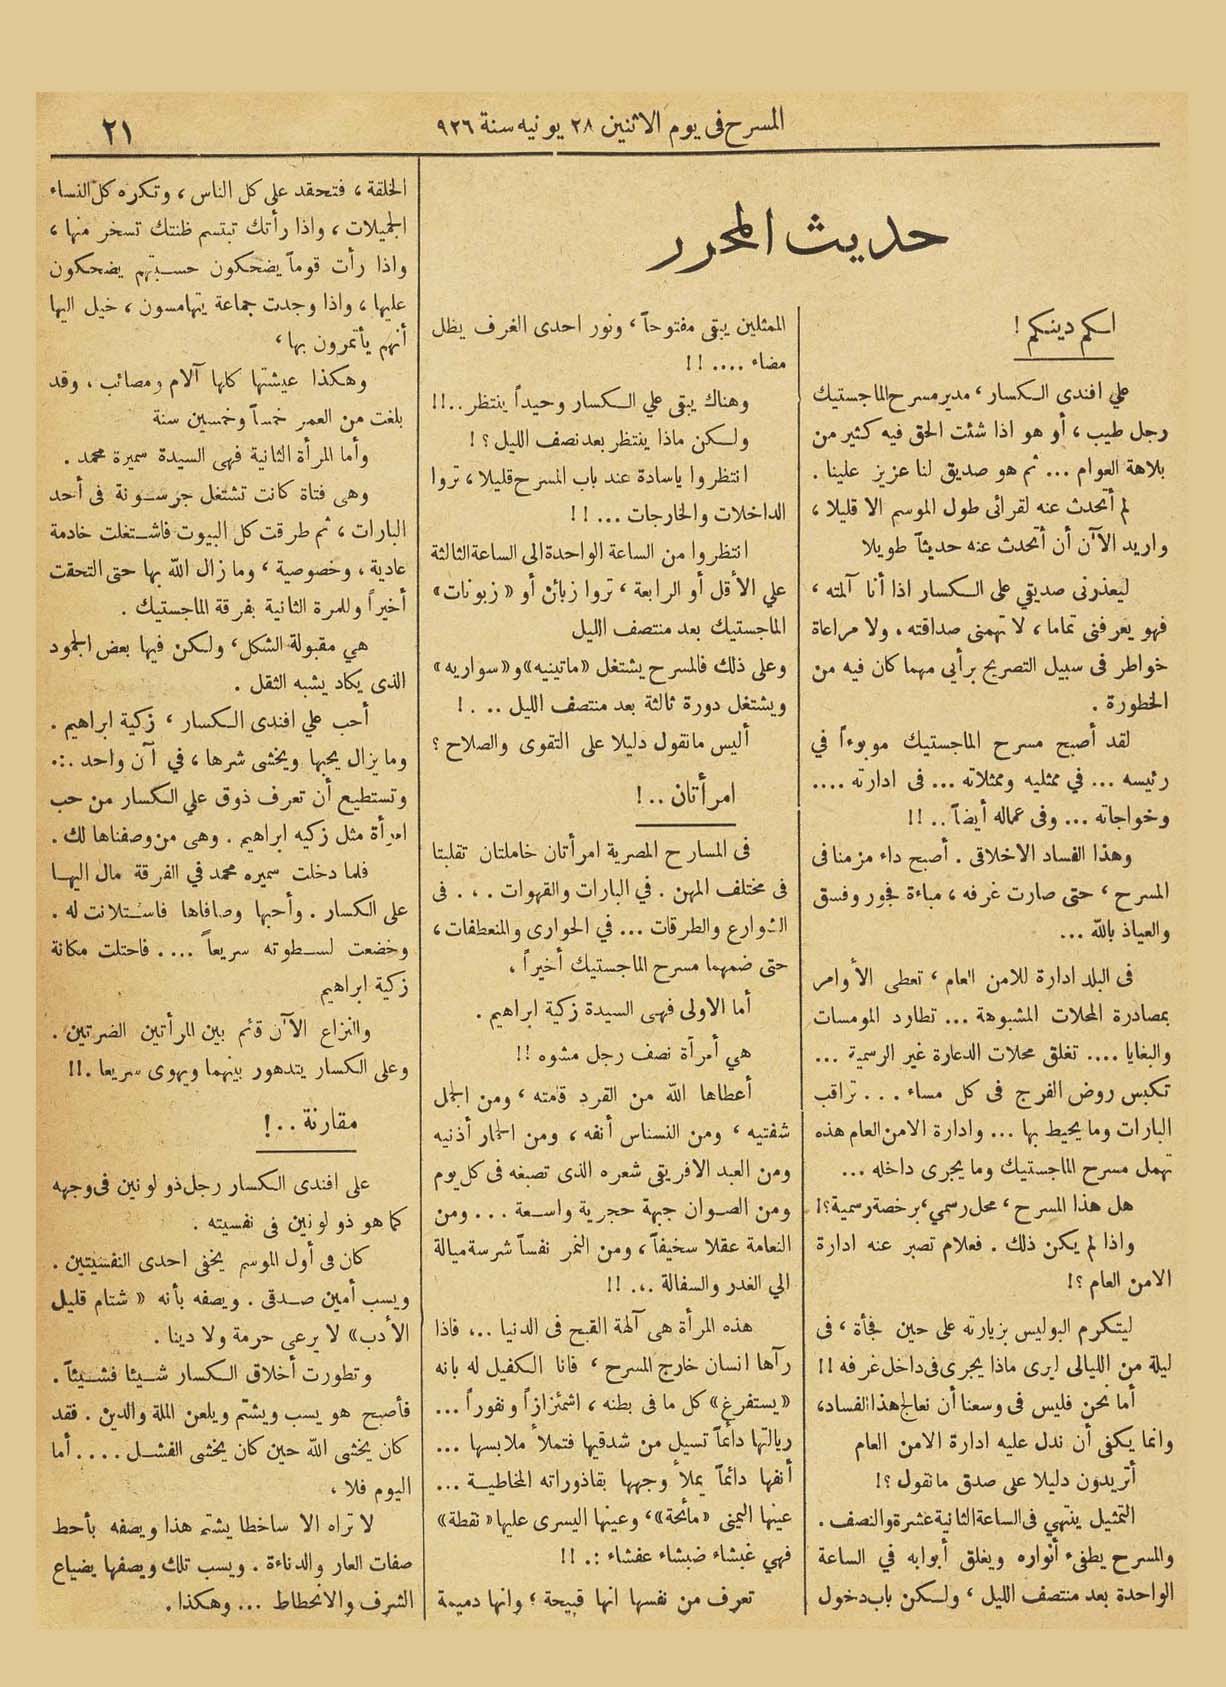 المسرح فى يوم الاثنين ٢٨ يونيه سنة ٩٢٦
٢١
حديث المحرر
لكم دينكم !
علي افندى الكسار ، مدير مسرح الماجستيك
رجل طيب ، أو هو اذا شئت الحق فيه كثير من
بلاهة العوام ... ثم هو صديق لنا عزيز علينا .
لم أتحدث عنه لقرائى طول الموسم الا قليلا ،
واريد الآن أن أتحدث عنه حديثاً طويلا
ليعذرنى صديقي على الكسار اذا أنا آلمته ،
فهو يعرفنى تماما ، لا تهمنى صداقته . ولا مراعاة
خواطر فى سبيل التصريح برأيي مهما كان فيه من
الخطورة .
لقد أصبح مسرح الماجستيك موبوءاً في
رئيسه ... في ممثليه وممثلاته ... فى ادارته ....
وخواجاته ... وفى عماله أيضاً .. !!
وهذا الفساد الاخلاقى . أصبح داء مزمنا فى
المسرح ، حتى صارت غرفه ، مباءة فجور وفسق
والعياذ بالله ...
فى البلد ادارة للامن العام ، تعطى الأوامر
بمصادرة المحلات المشبوهة ... تطارد المومسات
والبغايا .... تغلق محلات الدعارة غير الرسمية ...
تكبس روض الفرج فى كل مساء . . . تراقب
البارات وما يحيط بها ... وادارة الامن العام هذه
تهمل مسرح الماجستيك وما يجرى داخله ...
هل هذا المسرح ، محل رسمي ، برخصة رسمية ؟!
واذا لم يكن ذلك . فعلام تصبر عنه ادارة
الامن العام ؟!
ليتكرم البوليس بزيارته على حين فجأة ، فى
ليلة من الليالى ليرى ماذا يجرى فى داخل غرفه !!
أما نحن فليس فى وسعنا أن نعالج هذا الفساد ،
وانما يكفى أن ندل عليه ادارة الامن العام
أتريدون دليلا على صدق ما نقول ؟!
التمثيل ينتهي فى الساعة الثانية عشرة والنصف .
والمسرح يطفيء أنواره ويغلق أبوابه في الساعة
الواحدة بعد منتصف الليل ، ولكن باب دخول
الممثلين يبقى مفتوحاً ، ونور احدى الغرف يظل
مضاء .... !!
وهناك يبقى علي الكسار وحيداً ينتظر ..!!
ولكن ماذا ينتظر بعد نصف الليل ؟ !
انتظروا ياسادة عند باب المسرح قليلا ، تروا
الداخلات والخارجات ... !!
انتظروا من الساعة الواحدة الى الساعة الثالثة
علي الأقل أو الرابعة ، تروا زبائن أو « زبونات »
الماجستيك بعد منتصف الليل
وعلى ذلك فالمسرح يشتغل « ماتينيه » و « سواريه »
ويشتغل دورة ثالثة بعد منتصف الليل .. . !
أليس مانقول دليلا على التقوى والصلاح ؟
امرأتان .. !
فى المسارح المصرية امرأتان خاملتان تقلبتا
فى مختلف المهن . في البارات والقهوات . . . فى
الشوارع والطرقات ... في الحوارى والمنعطفات ،
حتى ضمهما مسرح الماجستيك أخيراً .
أما الاولى فهى السيدة زكية ابراهيم .
هي أمرآة نصف رجل مشوه !!
أعطاها الله من القرد قامته ، ومن الجمل
شفتيه ، ومن النسناس أنفه ، ومن الحمار أذنيه
ومن العبد الافريقي شعره الذى تصبغه فى كل يوم
ومن الصوان جبهة حجرية واسعة ... ومن
النعامة عقلا سخيفاً ، ومن النمر نفساً شرسة ميالة
الي الغدر والسفالة ... !!
هذه المرأة هى آلهة القبح فى الدنيا ... فاذا
رآها انسان خارج المسرح ، فانا الكفيل له بانه
« يستفرغ » كل ما فى بطنه ، اشمئزازاً ونفوراً ...
ريالتها دائماً تسيل من شدقيها فتملأ ملابسها ...
أنفها دائماً يملأ وجهها بقاذوراته المخاطية ...
عينها اليمنى « مأتحة » ، وعينها اليسرى عليها « نقطة »
فهي غبشاء ضبشاء عفشاء .. !!
تعرف من نفسها انها قبيحة ، وانها دميمة
الخلقة ، فتحقد على كل الناس ، وتكره كل النساء
الجميلات ، واذا رأتك تبتسم ظنتك تسخر منها ،
واذا رأت قوماً يضحكون حسبتهم يضحكون
عليها ، واذا وجدت جماعة يتهامسون ، خيل اليها
أنهم يأتمرون بها ،
وهكذا عيشتها كلها آلام ومصائب ، وقد
بلغت من العمر خمساً وخمسين سنة
وأما المرأة الثانية فهى السيدة سميرة محمد .
وهى فتاة كانت تشتغل جرسونة فى أحد
البارات ، ثم طرقت كل البيوت فاشتغلت خادمة
عادية ، وخصوصية ، وما زال الله بها حتى التحقت
أخيراً وللمرة الثانية بفرقة الماجستيك .
هي مقبولة الشكل ، ولكن فيها بعض الجمود
الذى يكاد يشبه الثقل .
أحب علي افندى الكسار ، زكية ابراهيم .
وما يزال يحبها ويخشى شرها ، في آن واحد ...
وتستطيع أن تعرف ذوق علي الكسار من حب
امرأة مثل زكيه ابراهيم . وهى من وصفناها لك .
فلما دخلت سميره محمد في الفرقة مال اليها
على الكسار . وأحبها وصافاها فاستلانت له .
وخضعت لسطوته سريعاً .... فاحتلت مكانة
زكية ابراهيم
والنزاع الآن قائم بين المرأتين الضرتين .
وعلى الكسار يتدهور بينهما ويهوى سريعا .!!
مقارنة .. !
على افندى الكسار رجل ذو لونين فى وجهه
كما هو ذو لونين فى نفسيته .
كان فى أول الموسم يخفى احدى النفسيتين .
ويسب أمين صدقى . ويصفه بأنه « شتام قليل
الأدب » لا يرعى حرمة ولا دينا .
وتطورت أخلاق الكسار شيئا فشيئاً .
فأصبح هو يسب ويشتم ويلعن الملة والدين . فقد
كان يخشى الله حين كان يخشى الفشل .... أما
اليوم فلا ،
لا تراه الا ساخطا يشتم هذا ويصفه بأحط
صفات العار والدناءة . ويسب تلك ويصفها بضياع
الشرف والانحطاط ... وهكذا .